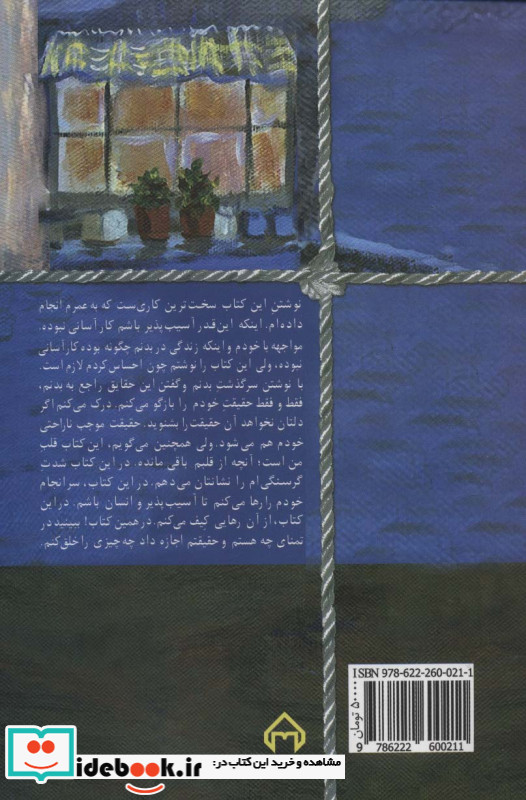 نوشتن این کتاب سخت‌ترین کاری‌ست که به عمرم انجام
داده‌ام. اینکه این‌قدر آسیب‌پذیر باشم کار آسانی نبوده.
مواجهه با خودم و اینکه زندگی در بدنم چگونه بوده کار آسانی
نبوده، ولی این کتاب را نوشتم چون احساس کردم لازم است.
با نوشتن سرگذشت بدنم و گفتن این حقایق راجع به بدنم،
فقط و فقط حقیقت خودم را بازگو می‌کنم. درک می‌کنم اگر
دلتان نخواهد آن حقیقت را بشنوید. حقیقت موجب ناراحتی
خودم هم می‌شود. ولی همچنین می‌گویم، این کتاب قلب
من است؛ آنچه از قلبم باقی مانده. در این کتاب شدت
گرسنگی‌ام را نشانتان می‌دهم. در این کتاب، سرانجام
خودم را رها می‌کنم تا آسیب‌پذیر و انسان باشم. در این
کتاب، از آن رهایی کیف می‌کنم. در همین کتاب! ببینید در
تمنای چه هستم و حقیقتم اجازه داد چه چیزی را خلق کنم.
ISBN 978-622-260-021-1
۵۰۰۰۰ تومان
9 786222 600211
مشاهده و خرید این کتاب در:
idebook.ir